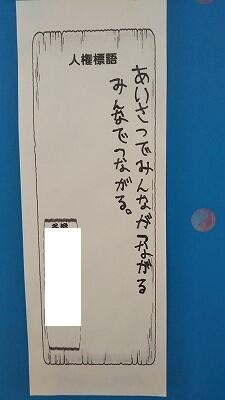 人権標語
あいさつでみんながつながる
みんなでつながる。